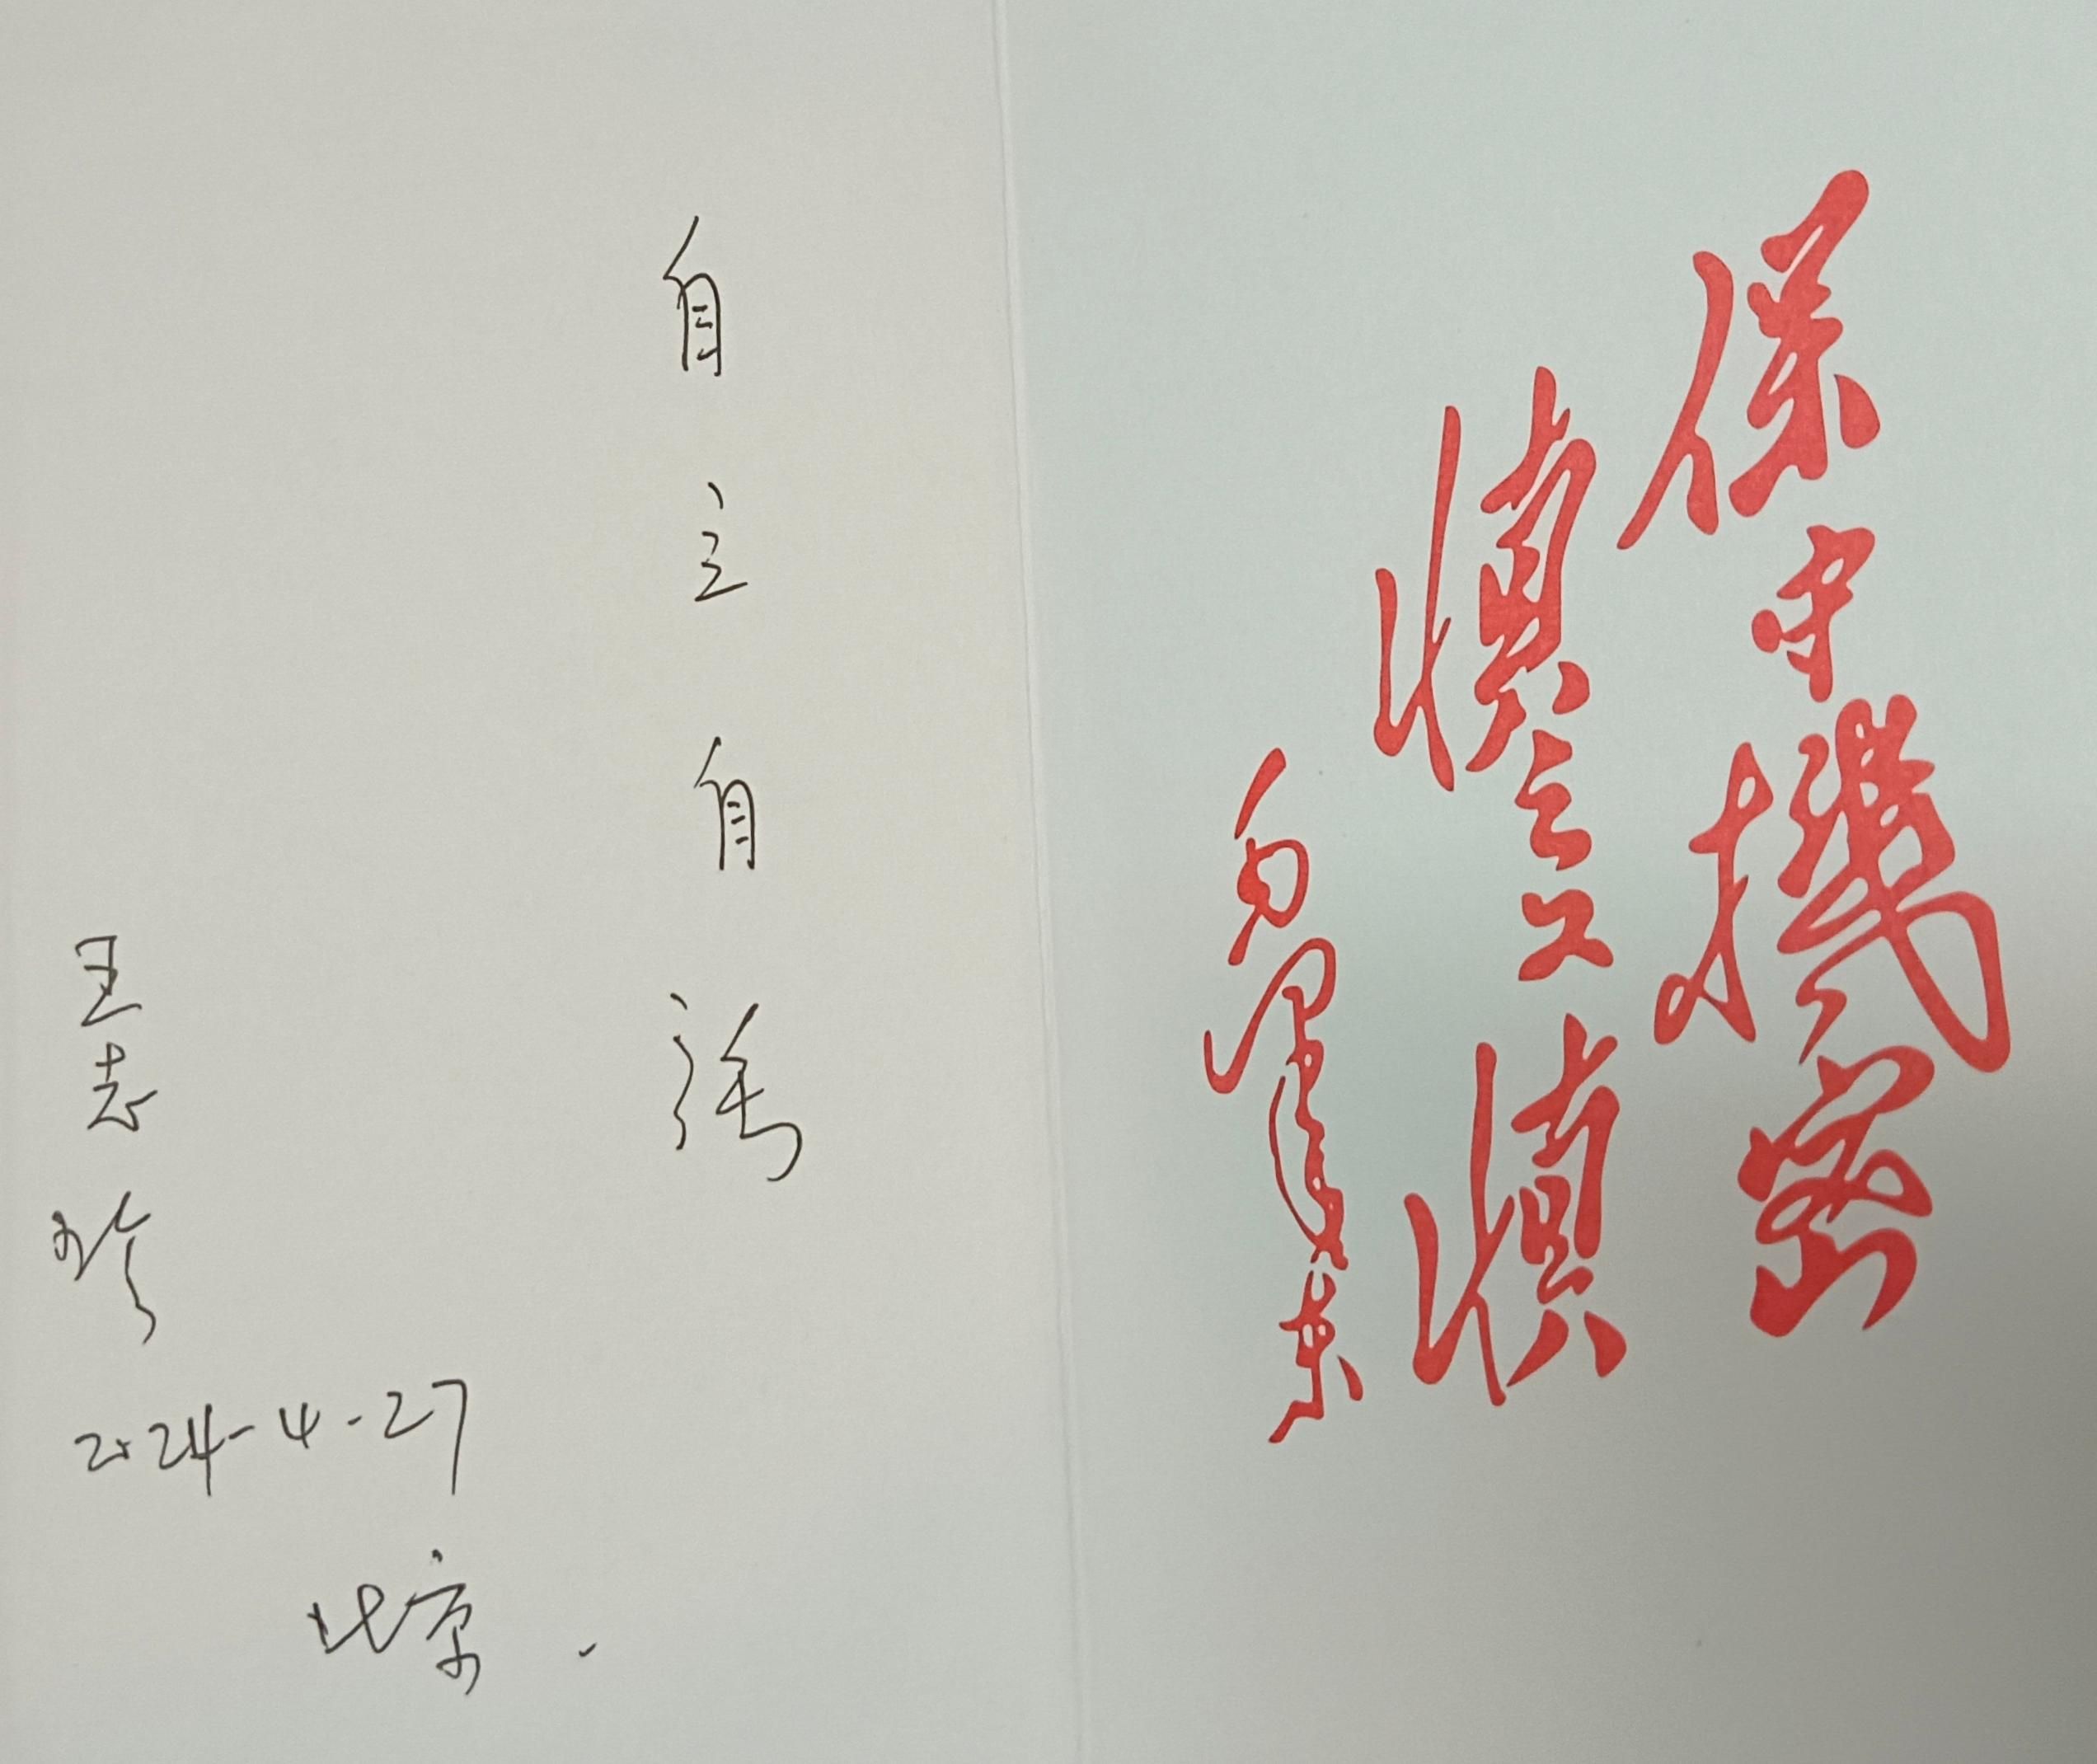 保守機密
慎之又慎
毛澤東
自主自
王志珍
2024-4-27
北京.